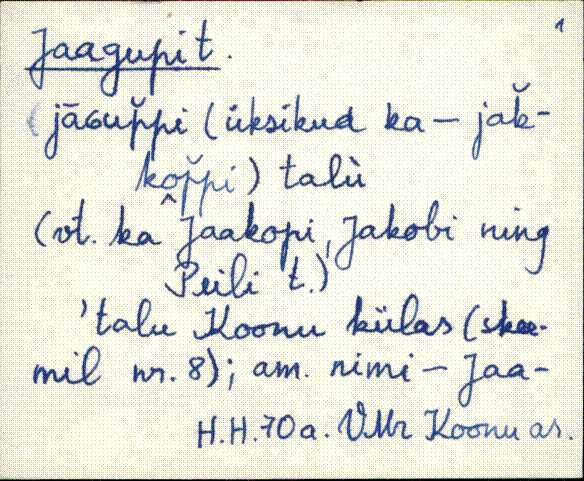 1
Jaagupi t.
(jāGup̆pi (üksikud ka – jak̆-
kop̆pi) talù
(vt. ka Jaakopi, Jakobi ning
Peili t.)
'talu Koonu külas (skee-
mil nr. 8); am. nimi – Jaa-
H.H. 70 a. VMr Koonu as.